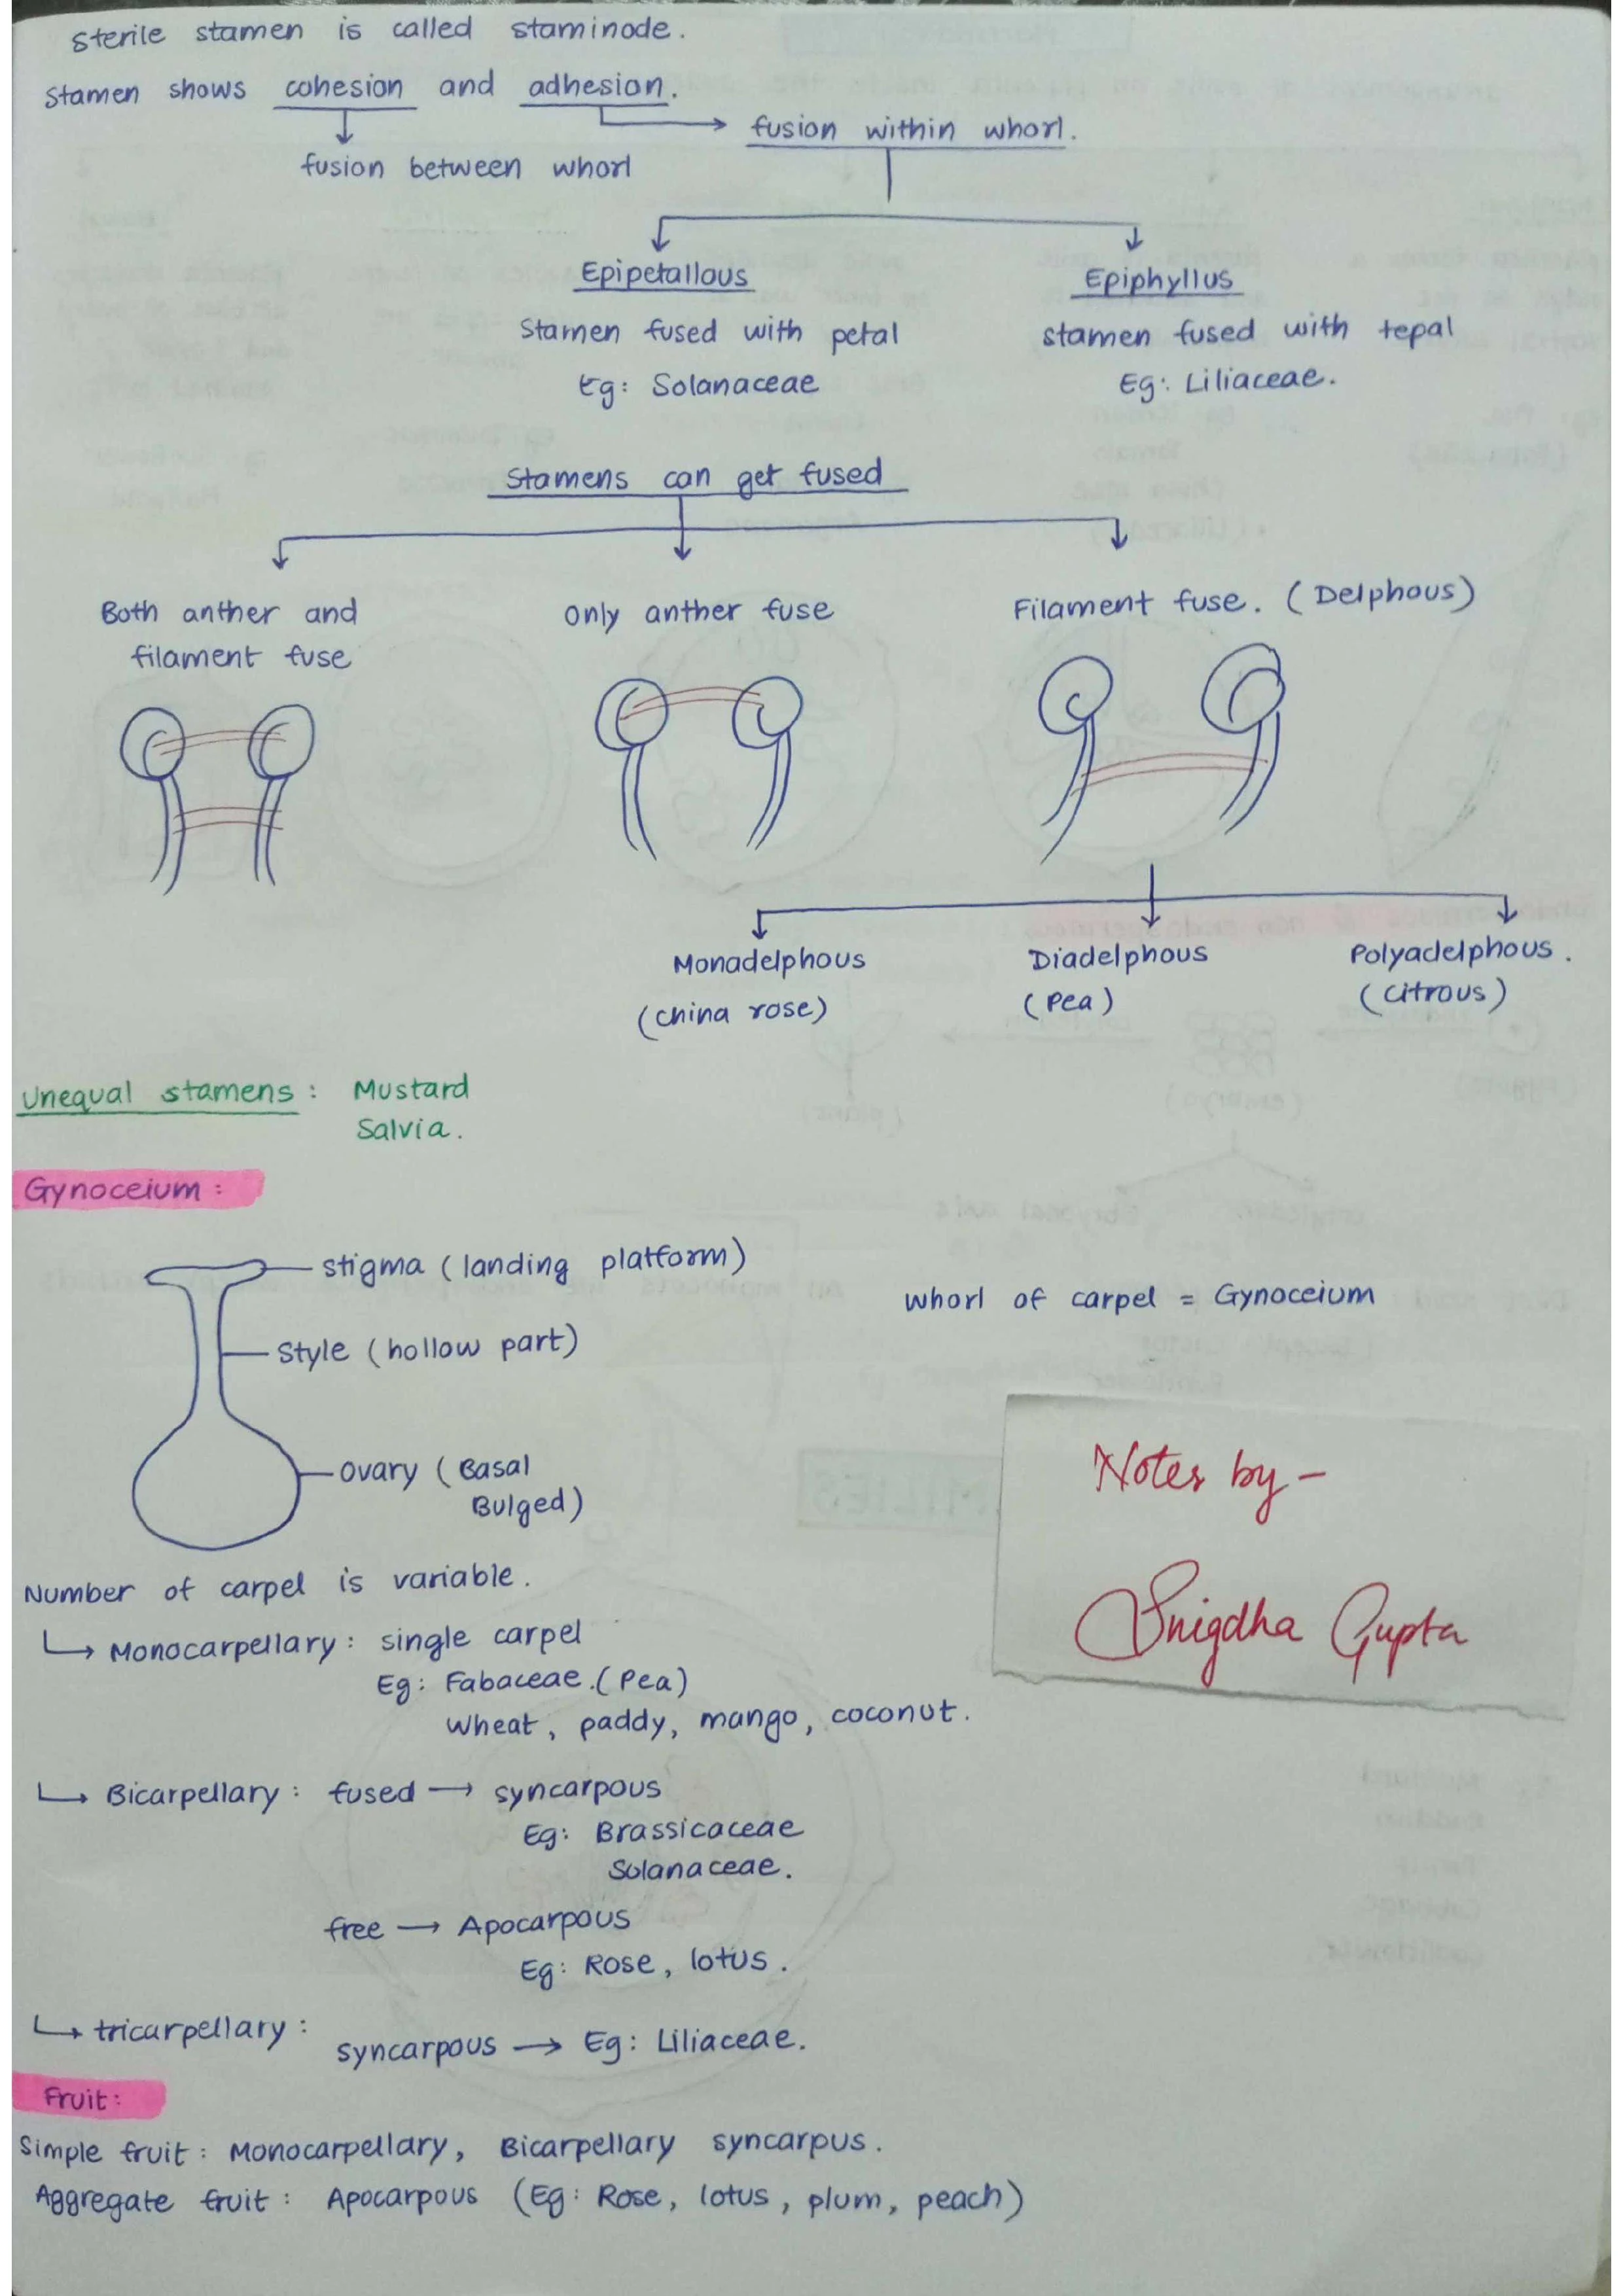 sterile stamen is called staminode.
stamen shows cohesion and adhesion.
fusion within whorl.
fusion between whorl
Epipetallous
Stamen fused with petal
Eg: Solanaceae
Epiphyllus
stamen fused with tepal
Eg: Liliaceae.
Stamens can get fused
Both anther and
filament fuse
only anther fuse
Filament fuse. (Delphous)
Monadelphous
(china rose)
Diadelphous
(Pea)
Polyadelphous.
(citrous)
Unequal stamens: Mustard
Salvia.
Gynoceium:
stigma (landing platform)
Style (hollow part)
ovary (Basal
Bulged)
whorl of carpel = Gynoceium
Notes by -
Snigdha Gupta
Number of carpel is variable.
Monocarpellary: single carpel
Eg: Fabaceae.(Pea)
wheat, paddy, mango, coconut.
Bicarpellary: fused → syncarpous
Eg: Brassicaceae
Solanaceae.
free → Apocarpous
Eg: Rose, lotus.
tricarpellary:
syncarpous → Eg: Liliaceae.
Fruit:
Simple fruit: Monocarpellary, Bicarpellary syncarpus.
Aggregate fruit: Apocarpous (Eg: Rose, lotus, plum, peach)